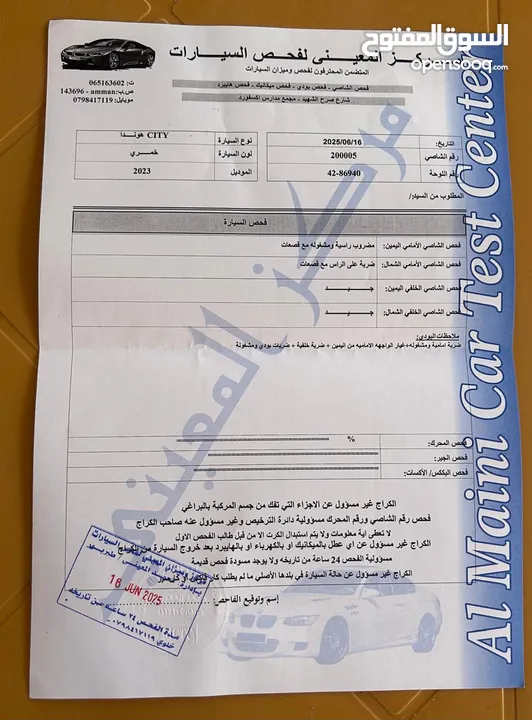 السوق المفتوح
opensooq.com
مركز المعيني لفحص السيارات
المتضمن المحترفون لفحص وميزان السيارات
فحص الشاصي - فحص بودي - فحص ميكانيك - فحص هايبرد
شارع صرح الشهيد - مجمع مدارس اكسفورد
ت: 065163602
ص.ب: amman - 143696
موبايل: 0798417119
التاريخ: 2025/06/16
نوع السيارة هوندا CITY
رقم الشاصي 200005
لون السيارة خمري
رقم اللوحة 42-86940
الموديل 2023
المطلوب من السيد/
فحص السيارة
فحص الشاصي الأمامي اليمين: مضروب راسية ومشغوله مع قصعات
فحص الشاصي الأمامي الشمال: ضربة على الراس مع قصعات
فحص الشاصي الخلفي اليمين: جـــيـــد
فحص الشاصي الخلفي الشمال: جـــيـــد
ملاحظات البودي:
ضربة امامية ومشغوله+غيار الواجهه الاماميه من اليمين + ضربة خلفية + ضربات بودي ومشغولة
فحص المحرك: %
فحص الجير:
فحص البككس/ الأكسات:
الكراج غير مسؤول عن الاجزاء التي تفك من جسم المركبة بالبراغي
فحص رقم الشاصي ورقم المحرك مسؤولية دائرة الترخيص وغير مسؤول عنه صاحب الكراج
لا تعطى أية معلومات ولا يتم استبدال الكرت الا من قبل طالب الفحص الاول
الكراج غير مسؤول عن اي عطل بالميكانيك او بالكهرباء او بالهايبرد بعد خروج السيارة من الكراج
مسؤولية الفحص 24 ساعة من تاريخه ولا يوجد مسودة فحص قديمة
الكراج غير مسؤول عن حالة السيارة في بلدها الأصلي ما لم يطلب كارفاكس او كارسير
إسم وتوقيع الفاحص:
16 JUN 2025
مدة الفحص ٢٤ ساعة من تاريخه
خلوي ٠٧٩٨٤١٧١١٩
مركز المعيني
Al Maini Car Test Center